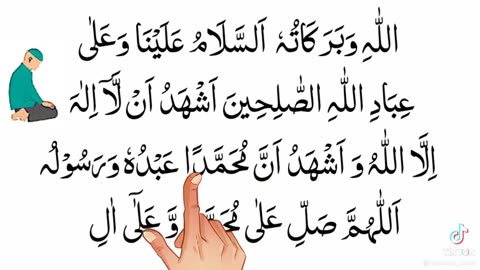 اللّٰهِ وَبَرَكَاتُهٗ اَلسَّلَامُ عَلَيْنَا وَعَلٰى
عِبَادِ اللّٰهِ الصّٰلِحِينَ اَشْهَدُ اَنْ لَّآ اِلٰهَ
اِلَّا اللّٰهُ وَ اَشْهَدُ اَنَّ مُحَمَّدًا عَبْدُهٗ وَرَسُوْلُهٗ
اَللّٰهُمَّ صَلِّ عَلٰى وَّ عَلٰٓى اٰلِ